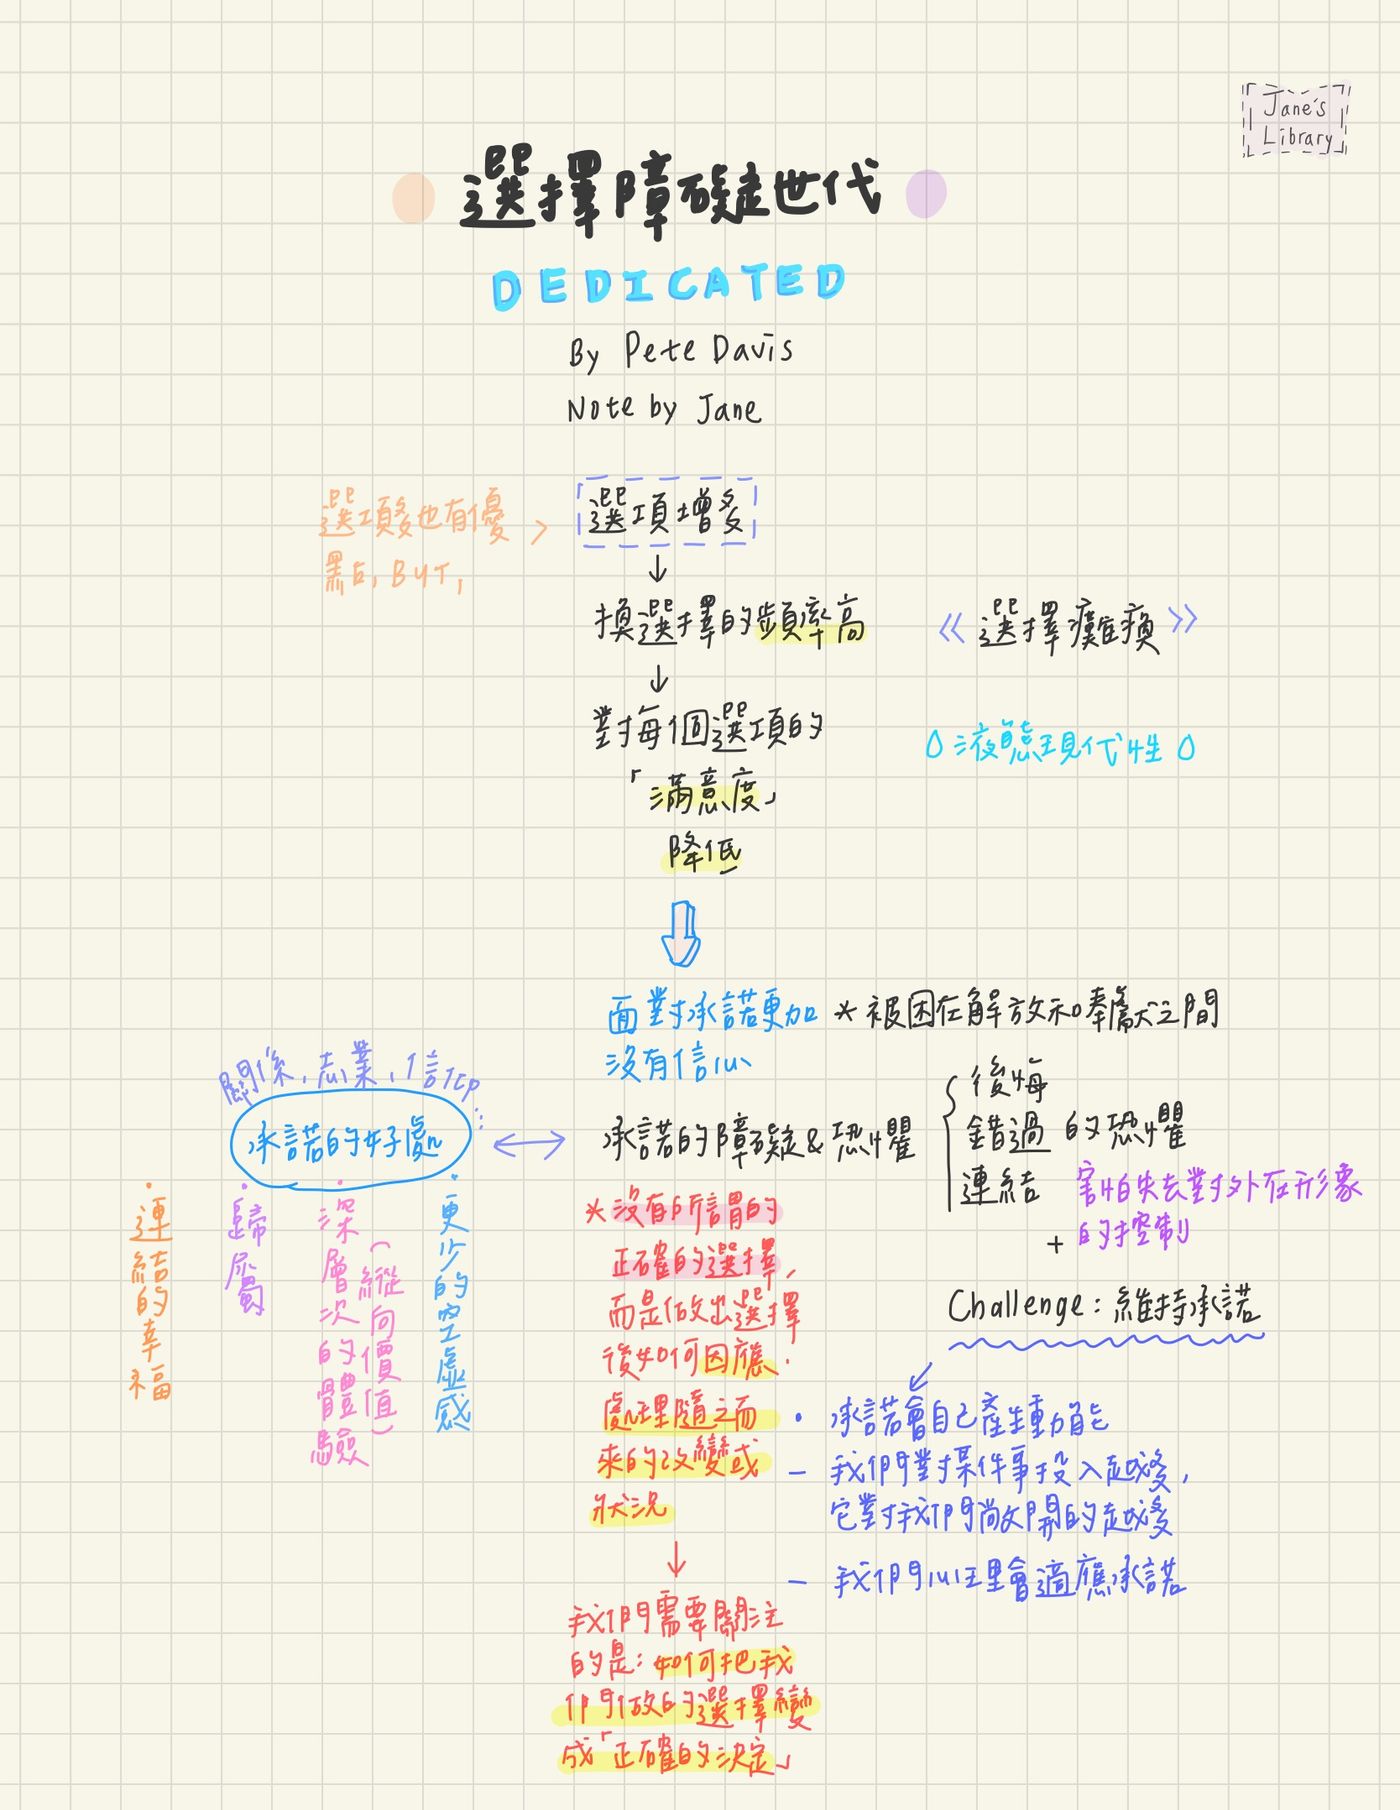 Jane's
Library
選擇障礙世代
DEDICATED
By Pete Davis
Note by Jane
選項多也有優
點, BUT,
選項增多
換選擇的頻率高
《選擇癱瘓》
對每個選項的
「滿意度」
降低
液態現代性
面對承諾更加
沒有信心
*被困在解放和奉獻之間
關係,志業,信仰...
承諾的好處
承諾的障礙&恐懼
後悔
錯過 的恐懼
連結
害怕失去對外在形象
的控制
+
Challenge:維持承諾
・連結的幸福
・歸屬
・深層次的體驗
(縱向價值)
・更少的空虛感
*沒有所謂的
正確的選擇,
而是做出選擇
後如何因應.
處理隨之而
來的改變或
狀況
・承諾會自己產生動能
- 我們對某件事投入越多,
它對我們敞開的越多
- 我們心理會適應承諾
我們需要關注
的是:如何把我
們做的選擇變
成「正確的決定」